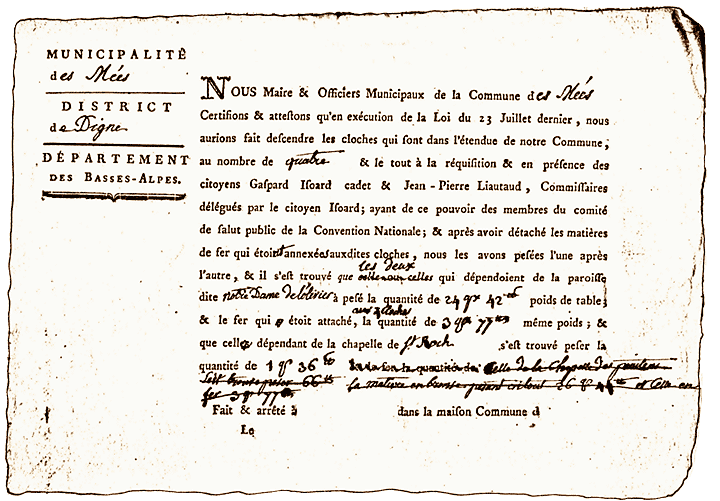 MUNICIPALITÉ
des Mées
DISTRICT
de Digne
DÉPARTEMENT
DES BASSES-ALPES.
NOUS Maire & Officiers Municipaux de la Commune des Mées
Certifions & attestons qu'en exécution de la Loi du 23 Juillet dernier, nous
aurions fait descendre les cloches qui sont dans l'étendue de notre Commune,
au nombre de quatre & le tout à la réquisition & en présence des
citoyens Gaspard Isoard cadet & Jean-Pierre Liautaud, Commissaires
délégués par le citoyen Isoard; ayant de ce pouvoir des membres du comité
de salut public de la Convention Nationale; & après avoir détaché les matières
de fer qui étoient annexées auxdites cloches, nous les avons pesées l'une après
les deux
l'autre, & il s'est trouvé que cloches qui dépendoient de la paroisse
dite notre Dame de à pesé la quantité de 24 qx 42 poids de table;
& le fer qui étoit attaché, la quantité de 3 qx 77 même poids; &
que celle dépendant de la chapelle de St Roch s'est trouvé peser la
quantité de 1 qx 36 la quantité de Celle de la Chapelle des
66 La matière en 26 44
fer 3 qx 77
Fait & arrêté à dans la maison Commune d
Le